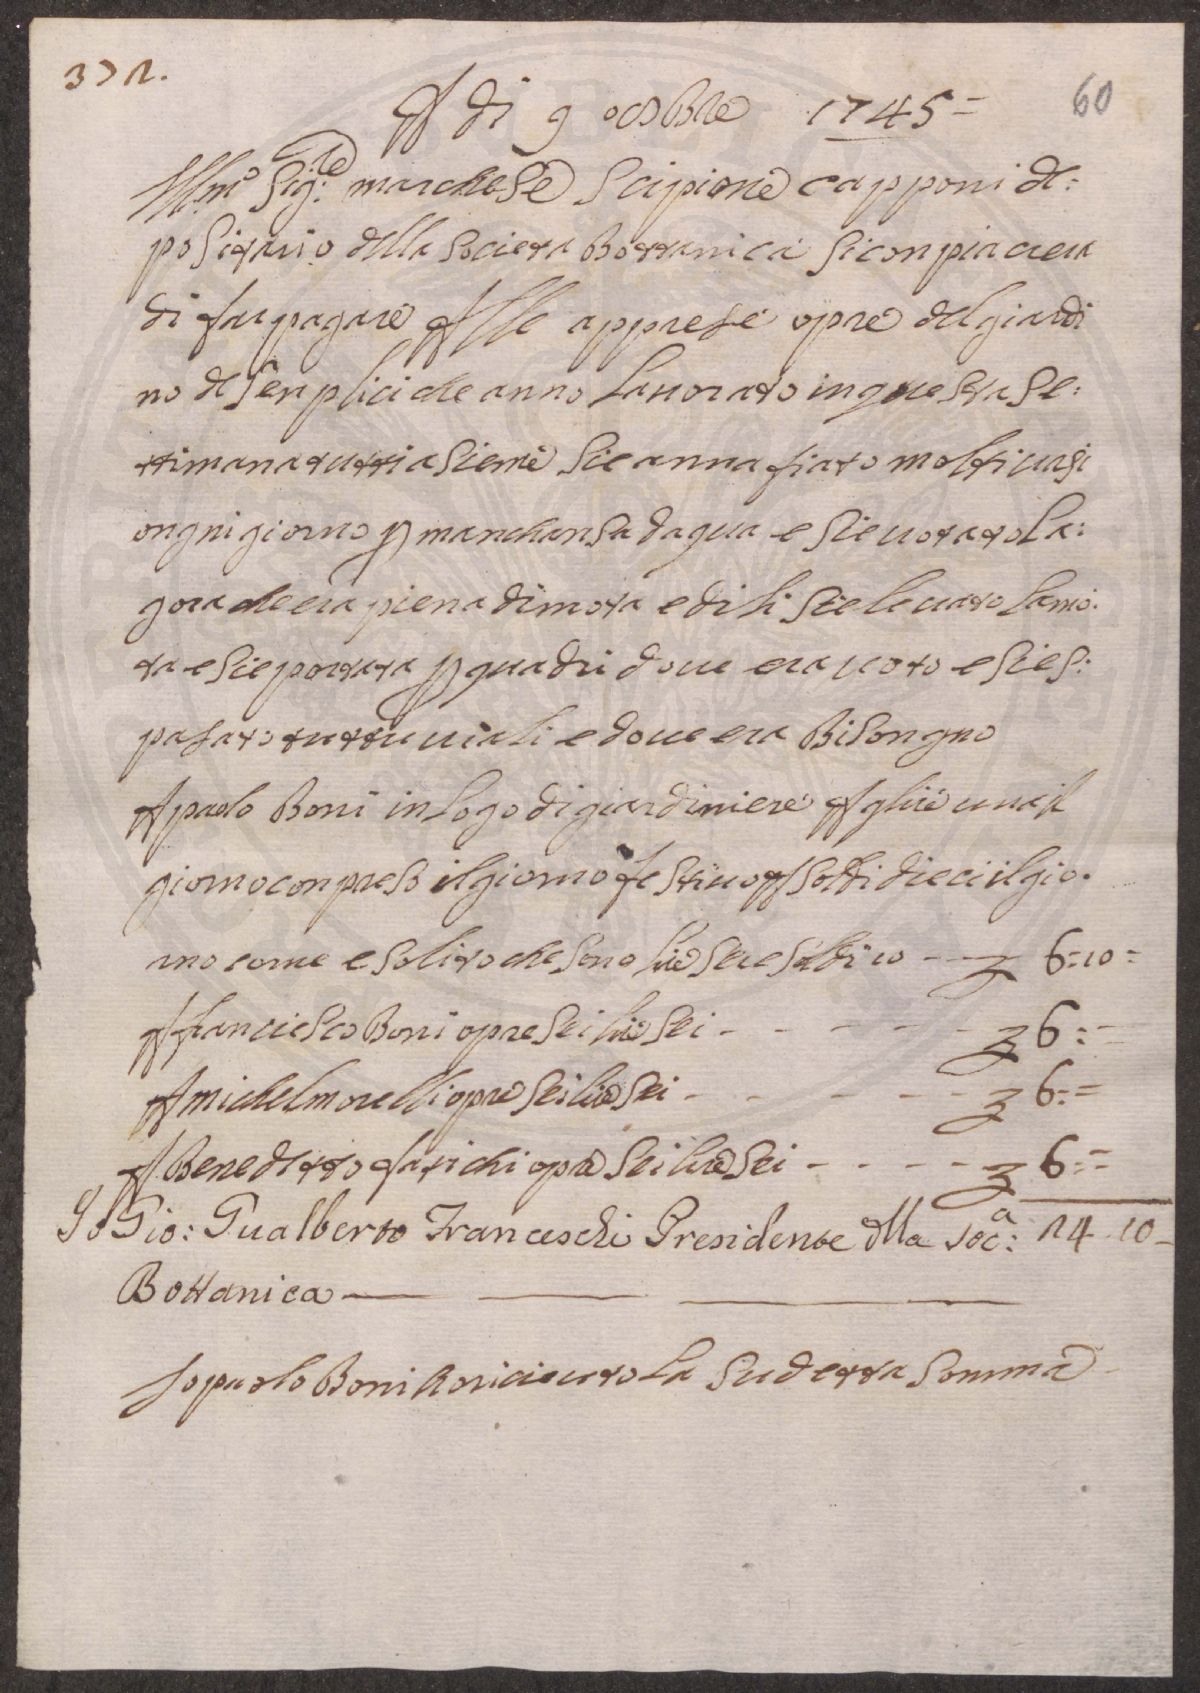 371.
60
A di 9 ottobre 1745=
Ill.mo Sig.re marchese Scipione capponi de:
positario della Societa Bottanica si conpiacera
di far pagare Alle apprese opre del giardi
no de senplici che anno Lauorato in questa se:
ttimana tutti asieme sie anna fiato molti uasi
ongni giorno p manchansa dagua e sie uotato La:
gora che era piena di mota e di li sie leuato la mo:
ta e sie portata p quadri doue era uoto e sies:
pasato tutti uiali e doue era Bisongno
A paolo Boni in logo di giardiniere A glire una il
giorno conpreso il giorno festiuo A soldi dieci il gio:
rno come e solito che sono lire sei e soldi 10 - - 6=10=
A franciesco Boni opre sei lire sei - - - - - 6:=
A michel morelli opre sei lire sei - - - - - 6:=
A Benedetto fatichi opre sei lire sei - - - - 6:=
Io Gio: Gualberto Franceschi Presidente della Soc.a: 24 10-
Bottanica
Io paolo Boni o riceuto la sudetta somma